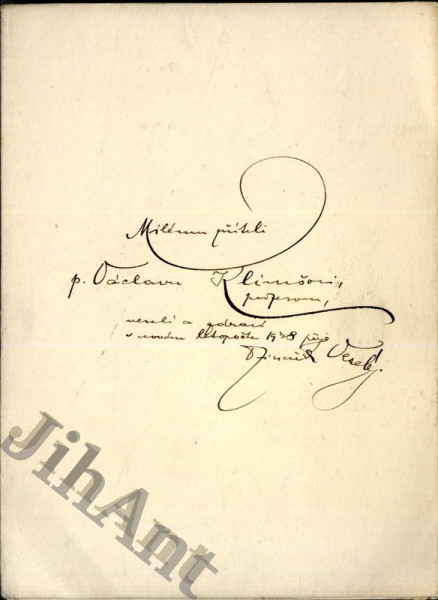 Milému příteli
p. Václavu Klimšovi,
profesoru,
veselí a zdraví
v novém letopočtu 1938 přeje
Vesely.
JihAnt